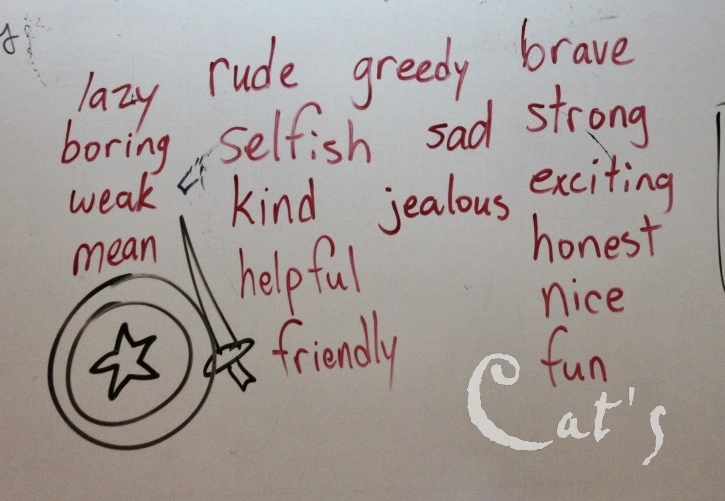 lazy
boring
weak
mean
rude greedy
selfish sad
kind jealous
helpful
friendly
brave
strong
exciting
honest
nice
fun
Cat's